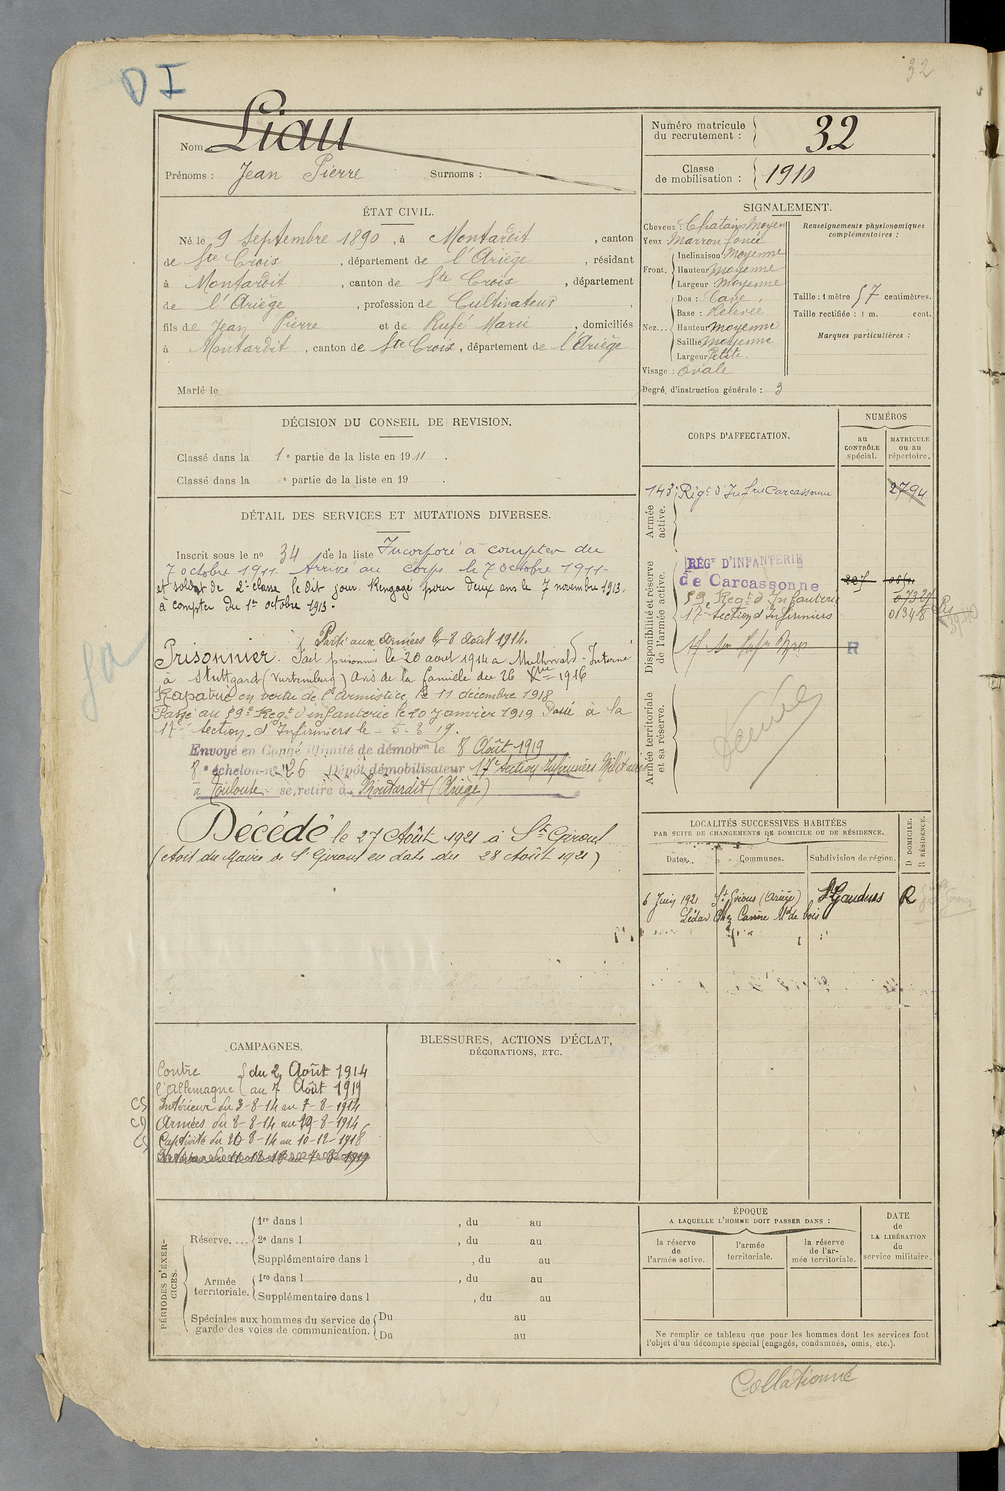 32
D I
Nom Liau
Prénoms : Jean Pierre Surnoms :
Numéro matricule du recrutement : 32
Classe de mobilisation : 1910
ÉTAT CIVIL.
Né le 9 Septembre 1890, à Montardit, canton
de Ste Croix, département de l'Ariège, résidant
à Montardit, canton de Ste Croix, département
de l'Ariège, profession de Cultivateur,
fils de Jean Pierre et de Rufé Marie, domiciliés
à Montardit, canton de Ste Croix, département de l'Ariège
Marié le
SIGNALEMENT.
Cheveux : Chatains Moyen
Yeux Marron foncé
Front. Inclinaison Moyenne
Hauteur moyenne
Largeur Moyenne
Nez... Dos : Cave
Base : Relevée
Hauteur moyenne
Saillie moyenne
Largeur Petite
Visage : ovale
Degré d'instruction générale : 3
Renseignements physionomiques complémentaires :
Taille : 1 mètre 57 centimètres.
Taille rectifiée : 1 m. cent.
Marques particulières :
DÉCISION DU CONSEIL DE REVISION.
Classé dans la 1e partie de la liste en 1911.
Classé dans la e partie de la liste en 19 .
DÉTAIL DES SERVICES ET MUTATIONS DIVERSES.
Inscrit sous le no 34 de la liste Incorporé à compter du
7 octobre 1911. Arrivé au corps le 7 octobre 1911
et soldat de 2e classe le dit jour. Rengagé pour deux ans le 7 novembre 1913.
à compter du 1er octobre 1913.
Parti aux Armées le 8 août 1914.
Prisonnier. Fait prisonnier le 20 aout 1914 a Interné
à Stuttgard (Vurtemburg) avis de la famille du 26 Xbre 1916
Rapatrié en vertu de l'armistice le 11 décembre 1918
Passé au 59e Regt d'infanterie le 20 Janvier 1919 Passé à la
17e Section d'Infirmiers le 5-3-19.
Envoyé en Congé illimité de démobon le 8 Août 1919
8e échelon no 26 Dépôt démobilisateur 17e Section Infirmiers Militaires
à Toulouse se retire à Montardit (Ariège)
Décédé le 27 Août 1921 à St Girons
(Avis du Maire de St Girons en date du 28 Août 1921)
CORPS D'AFFECTATION.
NUMÉROS
au CONTRÔLE spécial.
MATRICULE ou au répertoire.
Armée active.
143e Rég. d'Inf. Carcassonne 2794
Disponibilité et réserve de l'armée active.
RÉGt D'INFANTERIE
de Carcassonne
59e Regt d'Infanterie
17e Section d'Infirmiers 01348
R
Armée territoriale et sa réserve.
LOCALITÉS SUCCESSIVES HABITÉES
PAR SUITE DE CHANGEMENTS DE DOMICILE OU DE RÉSIDENCE.
Dates. Communes. Subdivision de région.
D DOMICILE. R RÉSIDENCE.
6 Juin 1921 St Girons (Ariège) St Gaudens R
CAMPAGNES.
Contre l'Allemagne du 2 Août 1914
au 7 Août 1919
Intérieur du 3-8-14 au 7-8-1914
Armées du 8-8-14 au 19-8-1914
Captivité du 20-8-14 au 10-12-1918
BLESSURES, ACTIONS D'ÉCLAT,
DÉCORATIONS, ETC.
PÉRIODES D'EXERCICES.
Réserve.... 1re dans l , du au
2e dans l , du au
Supplémentaire dans l , du au
Armée territoriale. 1re dans l , du au
Supplémentaire dans l , du au
Spéciales aux hommes du service de garde des voies de communication. Du au
Du au
ÉPOQUE
A LAQUELLE L'HOMME DOIT PASSER DANS :
la réserve de l'armée active.
l'armée territoriale.
la réserve de l'armée territoriale.
DATE de LA LIBÉRATION du service militaire.
Ne remplir ce tableau que pour les hommes dont les services font
l'objet d'un décompte spécial (engagés, condamnés, omis, etc.).
Collationné